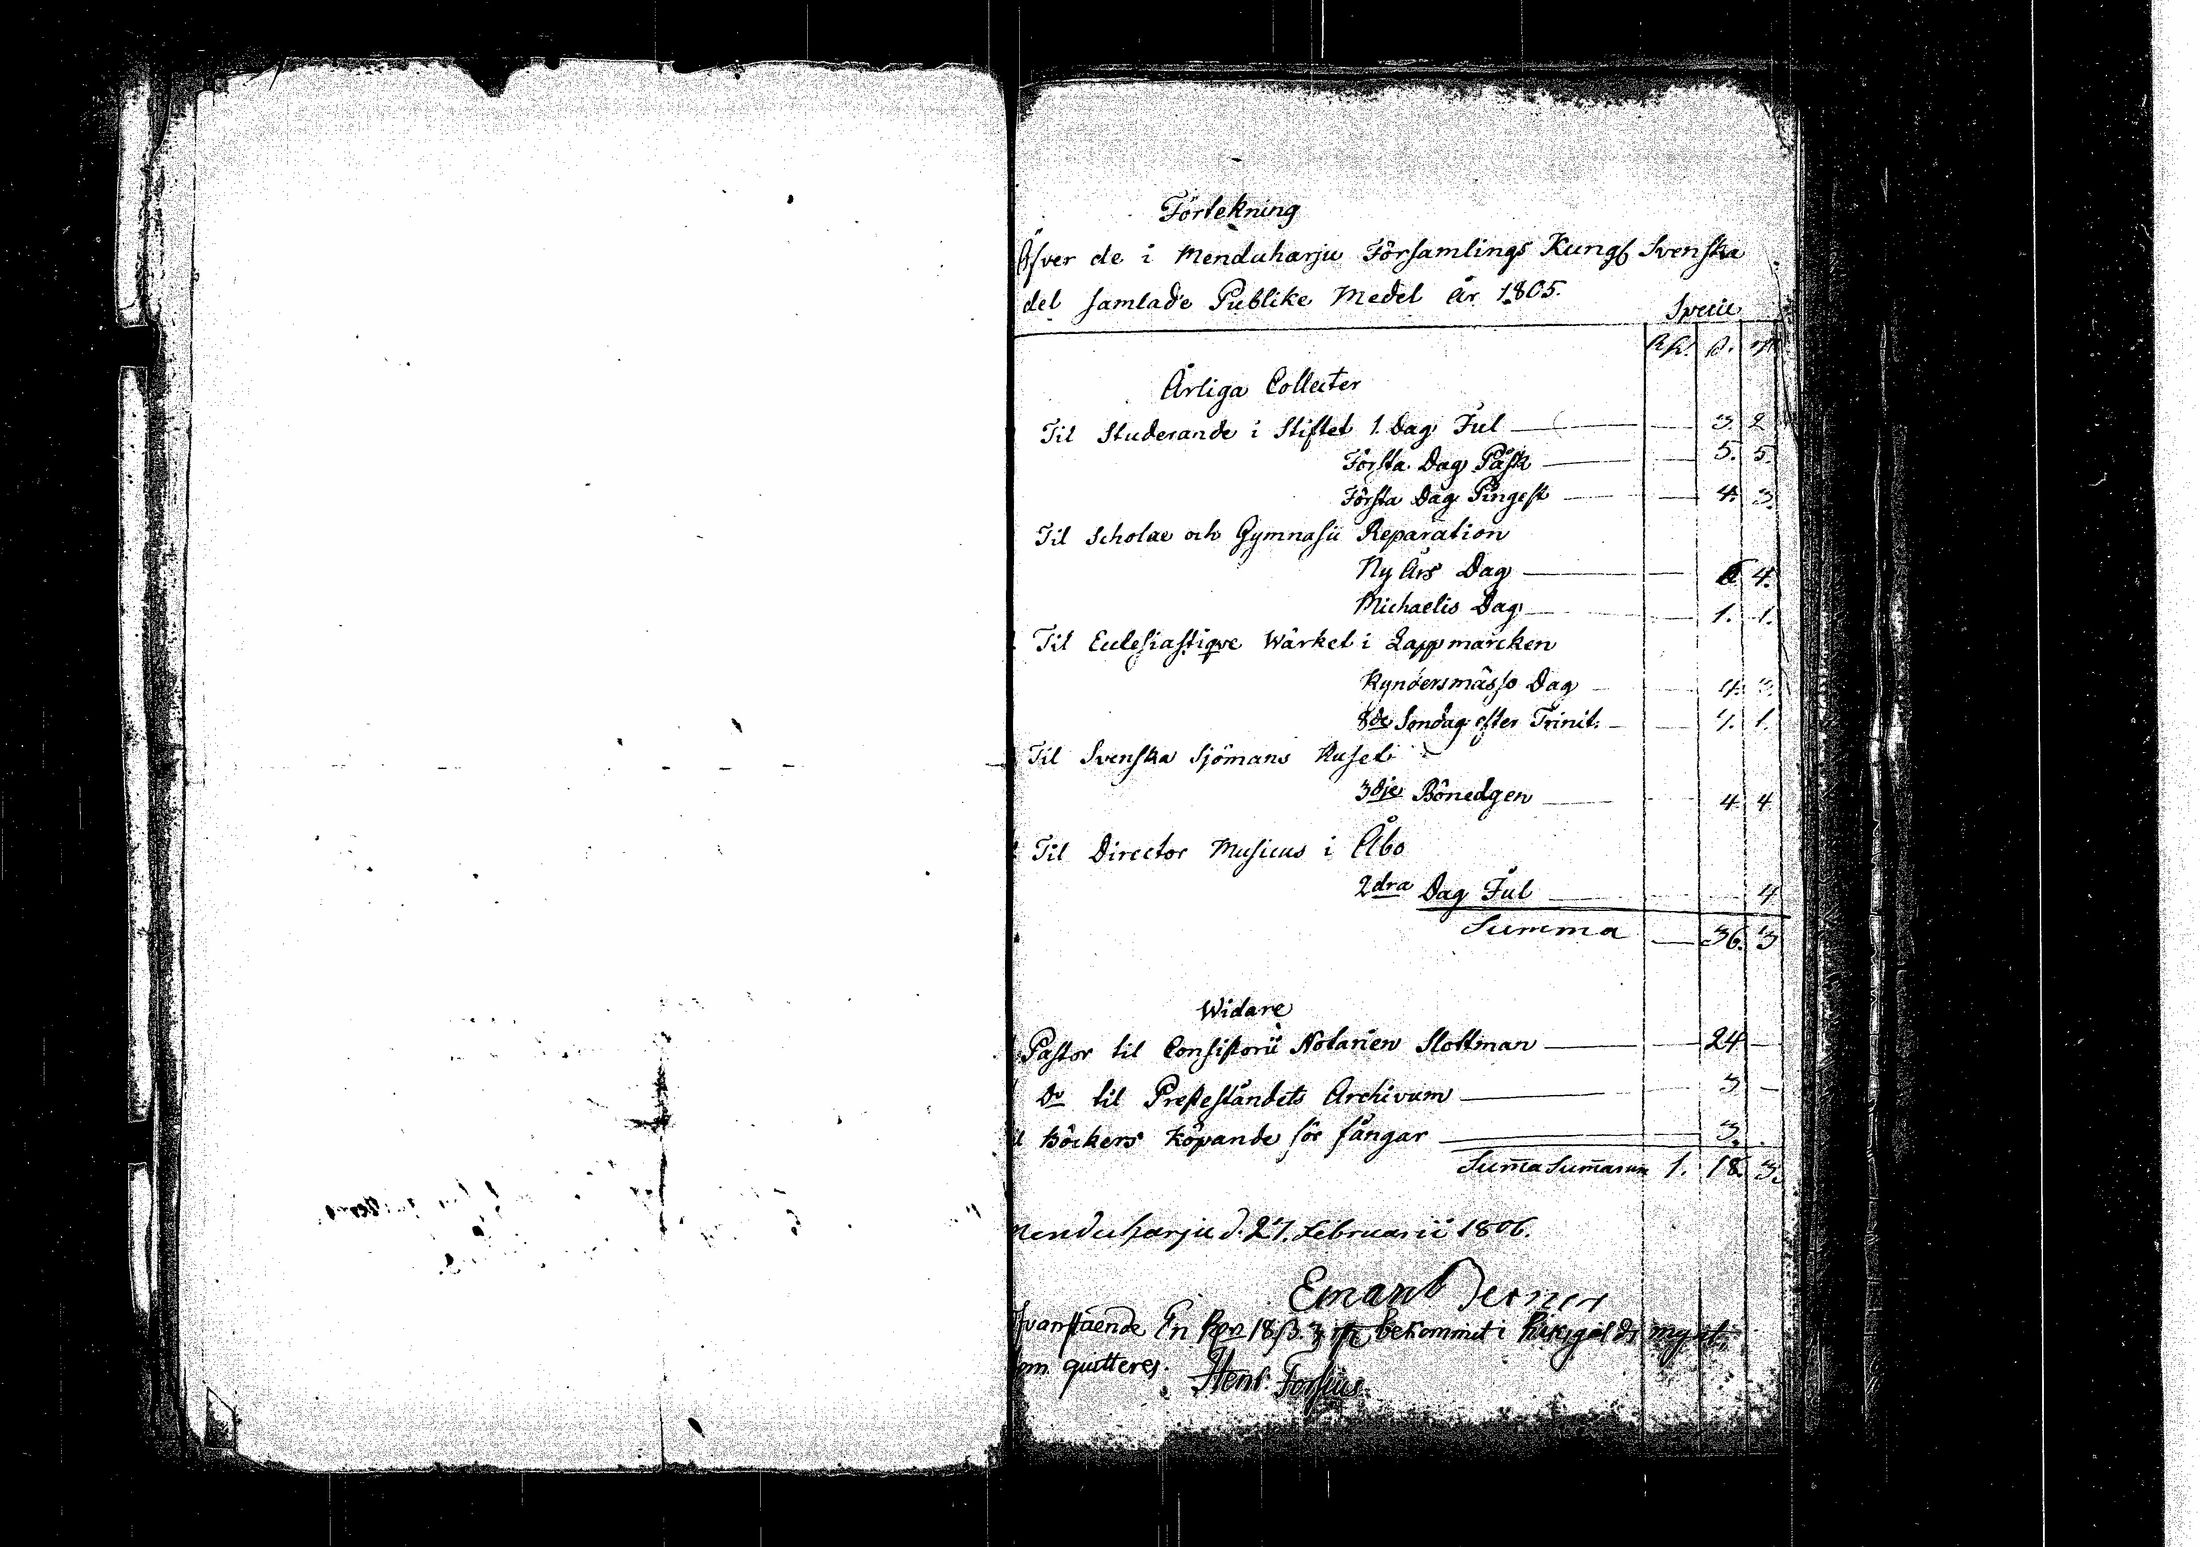 Förtekning
Öfver de i Menduharju Församlings Kungl Svenska
del samlade Publike Medel år 1805.
Specie
Rk. ß. rst
Årliga Collecter
Til Studerande i Stiftet 1. Dag Jul — 3. 2
Första Dag Påsk — 5. 5.
Första Dag Pingest — 4. 3.
Til Scholae och Gymnasii Reparation
Ny Års Dag — 4.
Michaelis Dag — 1. 1.
Til Ecclesiastiqve Wärket i Lappmarcken
Kyndersmässo Dag — 4. 3.
8de Söndag efter Trinit: — 7. 1.
Til Svenska Sjömans Huset
3dje Bönedgen — 4. 4
Til Director Musicus i Åbo
2dra Dag Jul — 4
Summa — 36. 3
Widare
Pastor til Consistorii Notarien Slottman — 24 —
Do til Presteståndets Archivum — 3 —
Böckers köpande för fångar — 3.
Suma Sumarum 1. 18. 3.
Menduharju d. 27. Februarii 1806.
Eman Terner
Ofvanstående En Rdr 18 ß. 3 rst bekommit i Riksgälds mynt,
som quitteres.
Henr. Forsius.